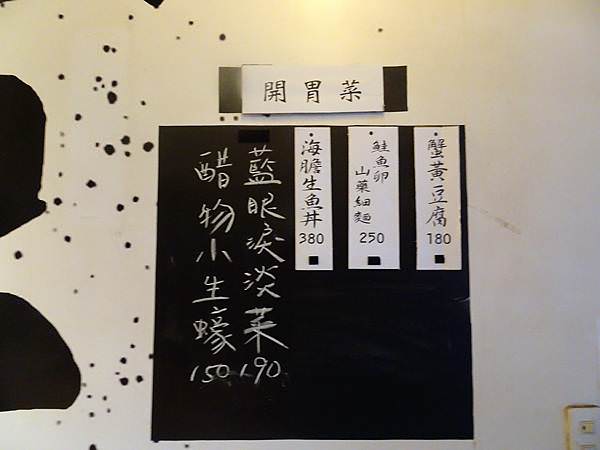 開胃菜
蟹黃豆腐
180
鮭魚卵
山藥細麵
250
海膽生魚丼
380
藍眼淚淡菜
190
醋物小生蠔
150